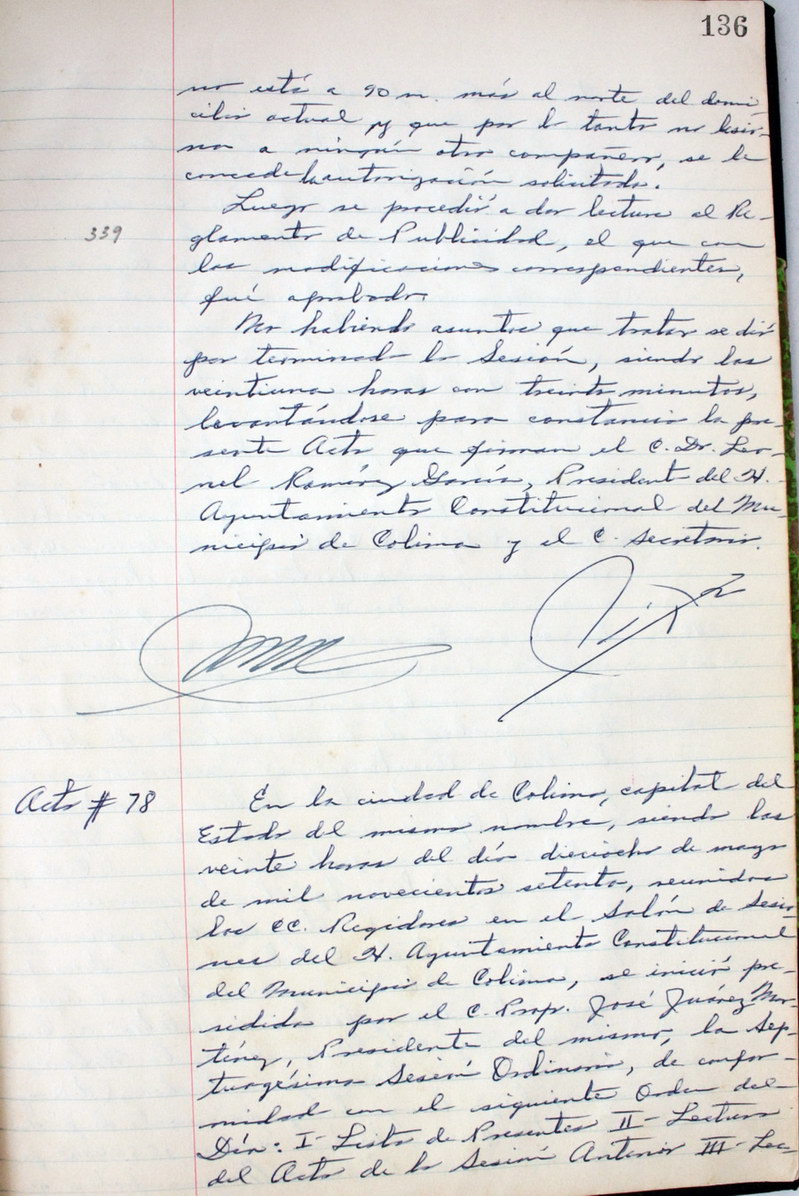 136
no está a 90 m. más al norte del domi-
cilio actual y que por lo tanto no lesio-
na a ningún otro compañero, se le
concede la autorización solicitada.
Luego se procedió a dar lectura al Re-
339
glamento de Publicidad, el que con
las modificaciones correspondientes,
fué aprobado.
No habiendo asuntos que tratar se dió
por terminada la Sesión, siendo las
veintiuna horas con treinta minutos,
levantándose para constancia la pre-
sente Acta que firman el C. Dr. Leo-
nel Ramírez García, Presidente del H.
Ayuntamiento Constitucional del Mu-
nicipio de Colima y el C. Secretario.
Acta # 78
En la ciudad de Colima, capital del
Estado del mismo nombre, siendo las
veinte horas del día dieciocho de mayo
de mil novecientos setenta, reunidos
los CC. Regidores en el Salón de Sesio-
nes del H. Ayuntamiento Constitucional
del Municipio de Colima, se inició pre-
sidida por el C. Prof. José Juárez Mar-
tínez, Presidente del mismo, la Sep-
tuagésima Sesión Ordinaria, de confor-
midad con el siguiente Orden del
Día: I- Lista de Presentes II- Lectura
del Acta de la Sesión Anterior III- Lec-